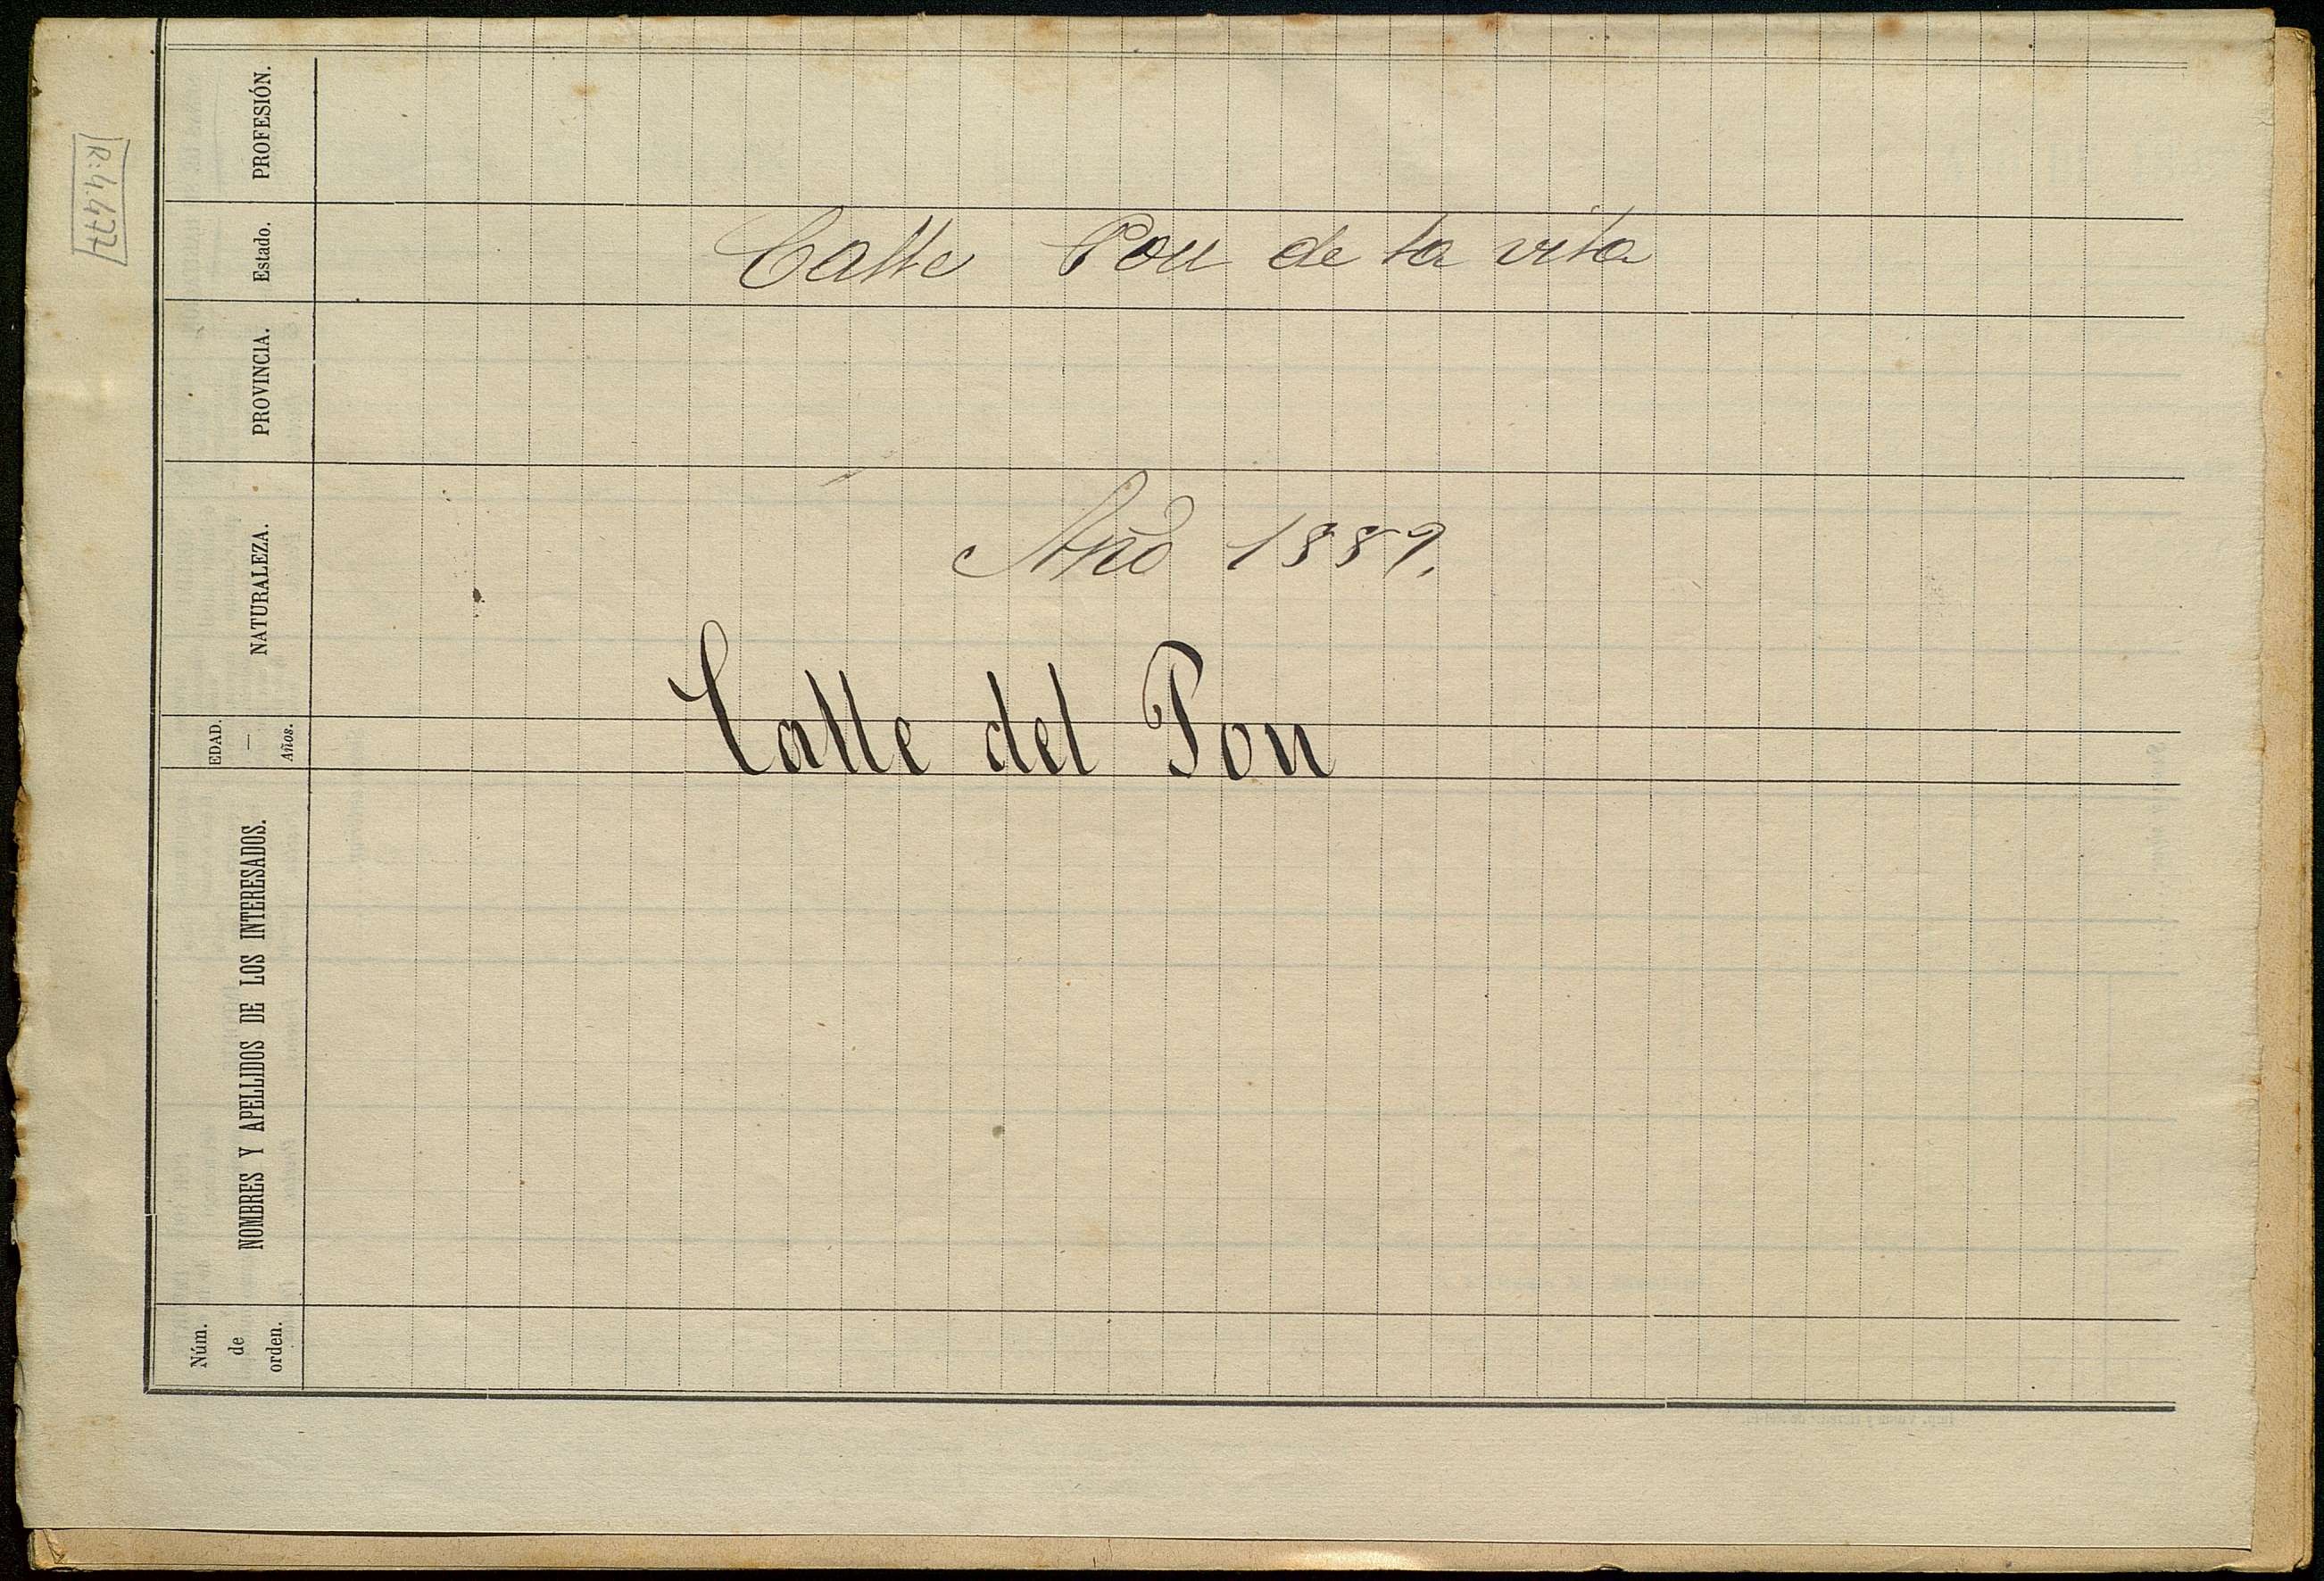 R:4.477
PROFESIÓN.
Estado.
PROVINCIA.
NATURALEZA.
EDAD.
—
Años.
NOMBRES Y APELLIDOS DE LOS INTERESADOS.
Núm.
de
orden.
Calle Pou de la vila
Año 1889.
Calle del Pou